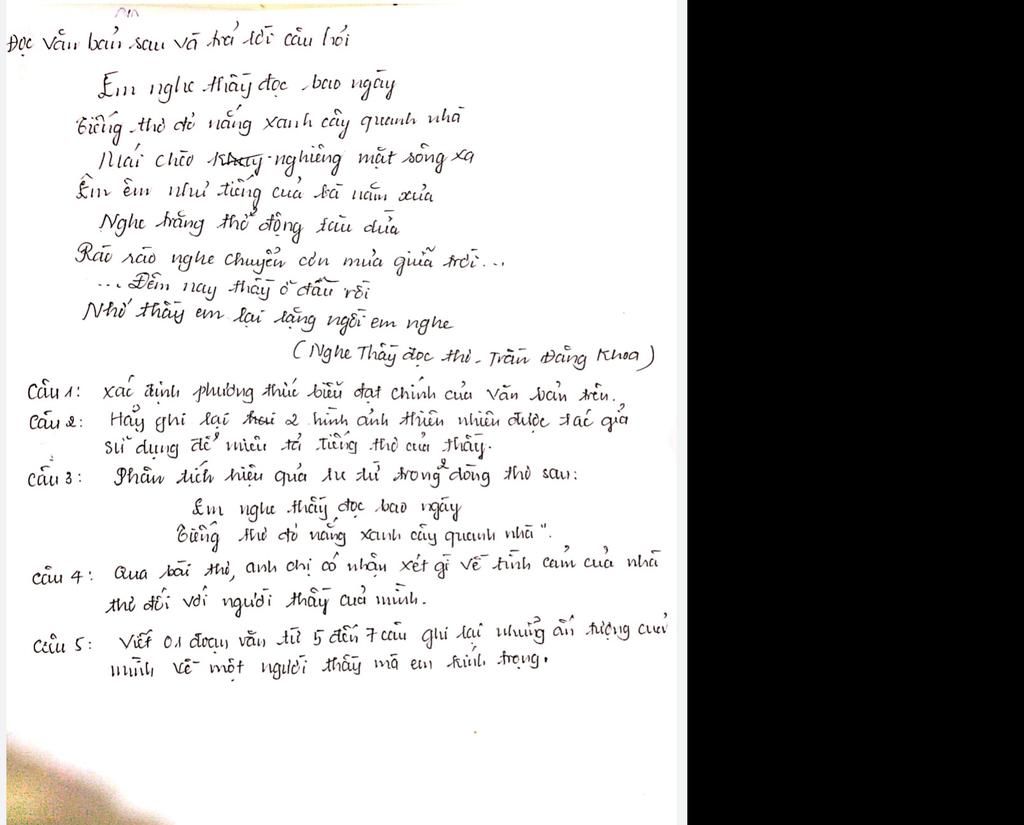 Đọc văn bản sau và trả lời câu hỏi
Em nghe thầy đọc bao ngày
Tiếng thơ đỏ nắng xanh cây quanh nhà
Mái chèo nghiêng mặt sông xa
Êm êm như tiếng của bà năm xưa
Nghe trăng thở động tàu dừa
Rào rào nghe chuyển cơn mưa giữa trời...
... Đêm nay thầy ở đâu rồi
Nhớ thầy em lại lặng ngồi em nghe
(Nghe Thầy đọc thơ - Trần Đăng Khoa)
Câu 1: xác định phương thức biểu đạt chính của văn bản trên.
Câu 2: Hãy ghi lại 2 hình ảnh thiên nhiên được tác giả
sử dụng để miêu tả tiếng thơ của thầy.
Câu 3: Phân tích hiệu quả tu từ trong 2 dòng thơ sau:
Em nghe thầy đọc bao ngày
Tiếng thơ đỏ nắng xanh cây quanh nhà".
Câu 4: Qua bài thơ, anh chị có nhận xét gì về tình cảm của nhà
thơ đối với người thầy của mình.
Câu 5: Viết 01 đoạn văn từ 5 đến 7 câu ghi lại những ấn tượng của
mình về một người thầy mà em kính trọng.